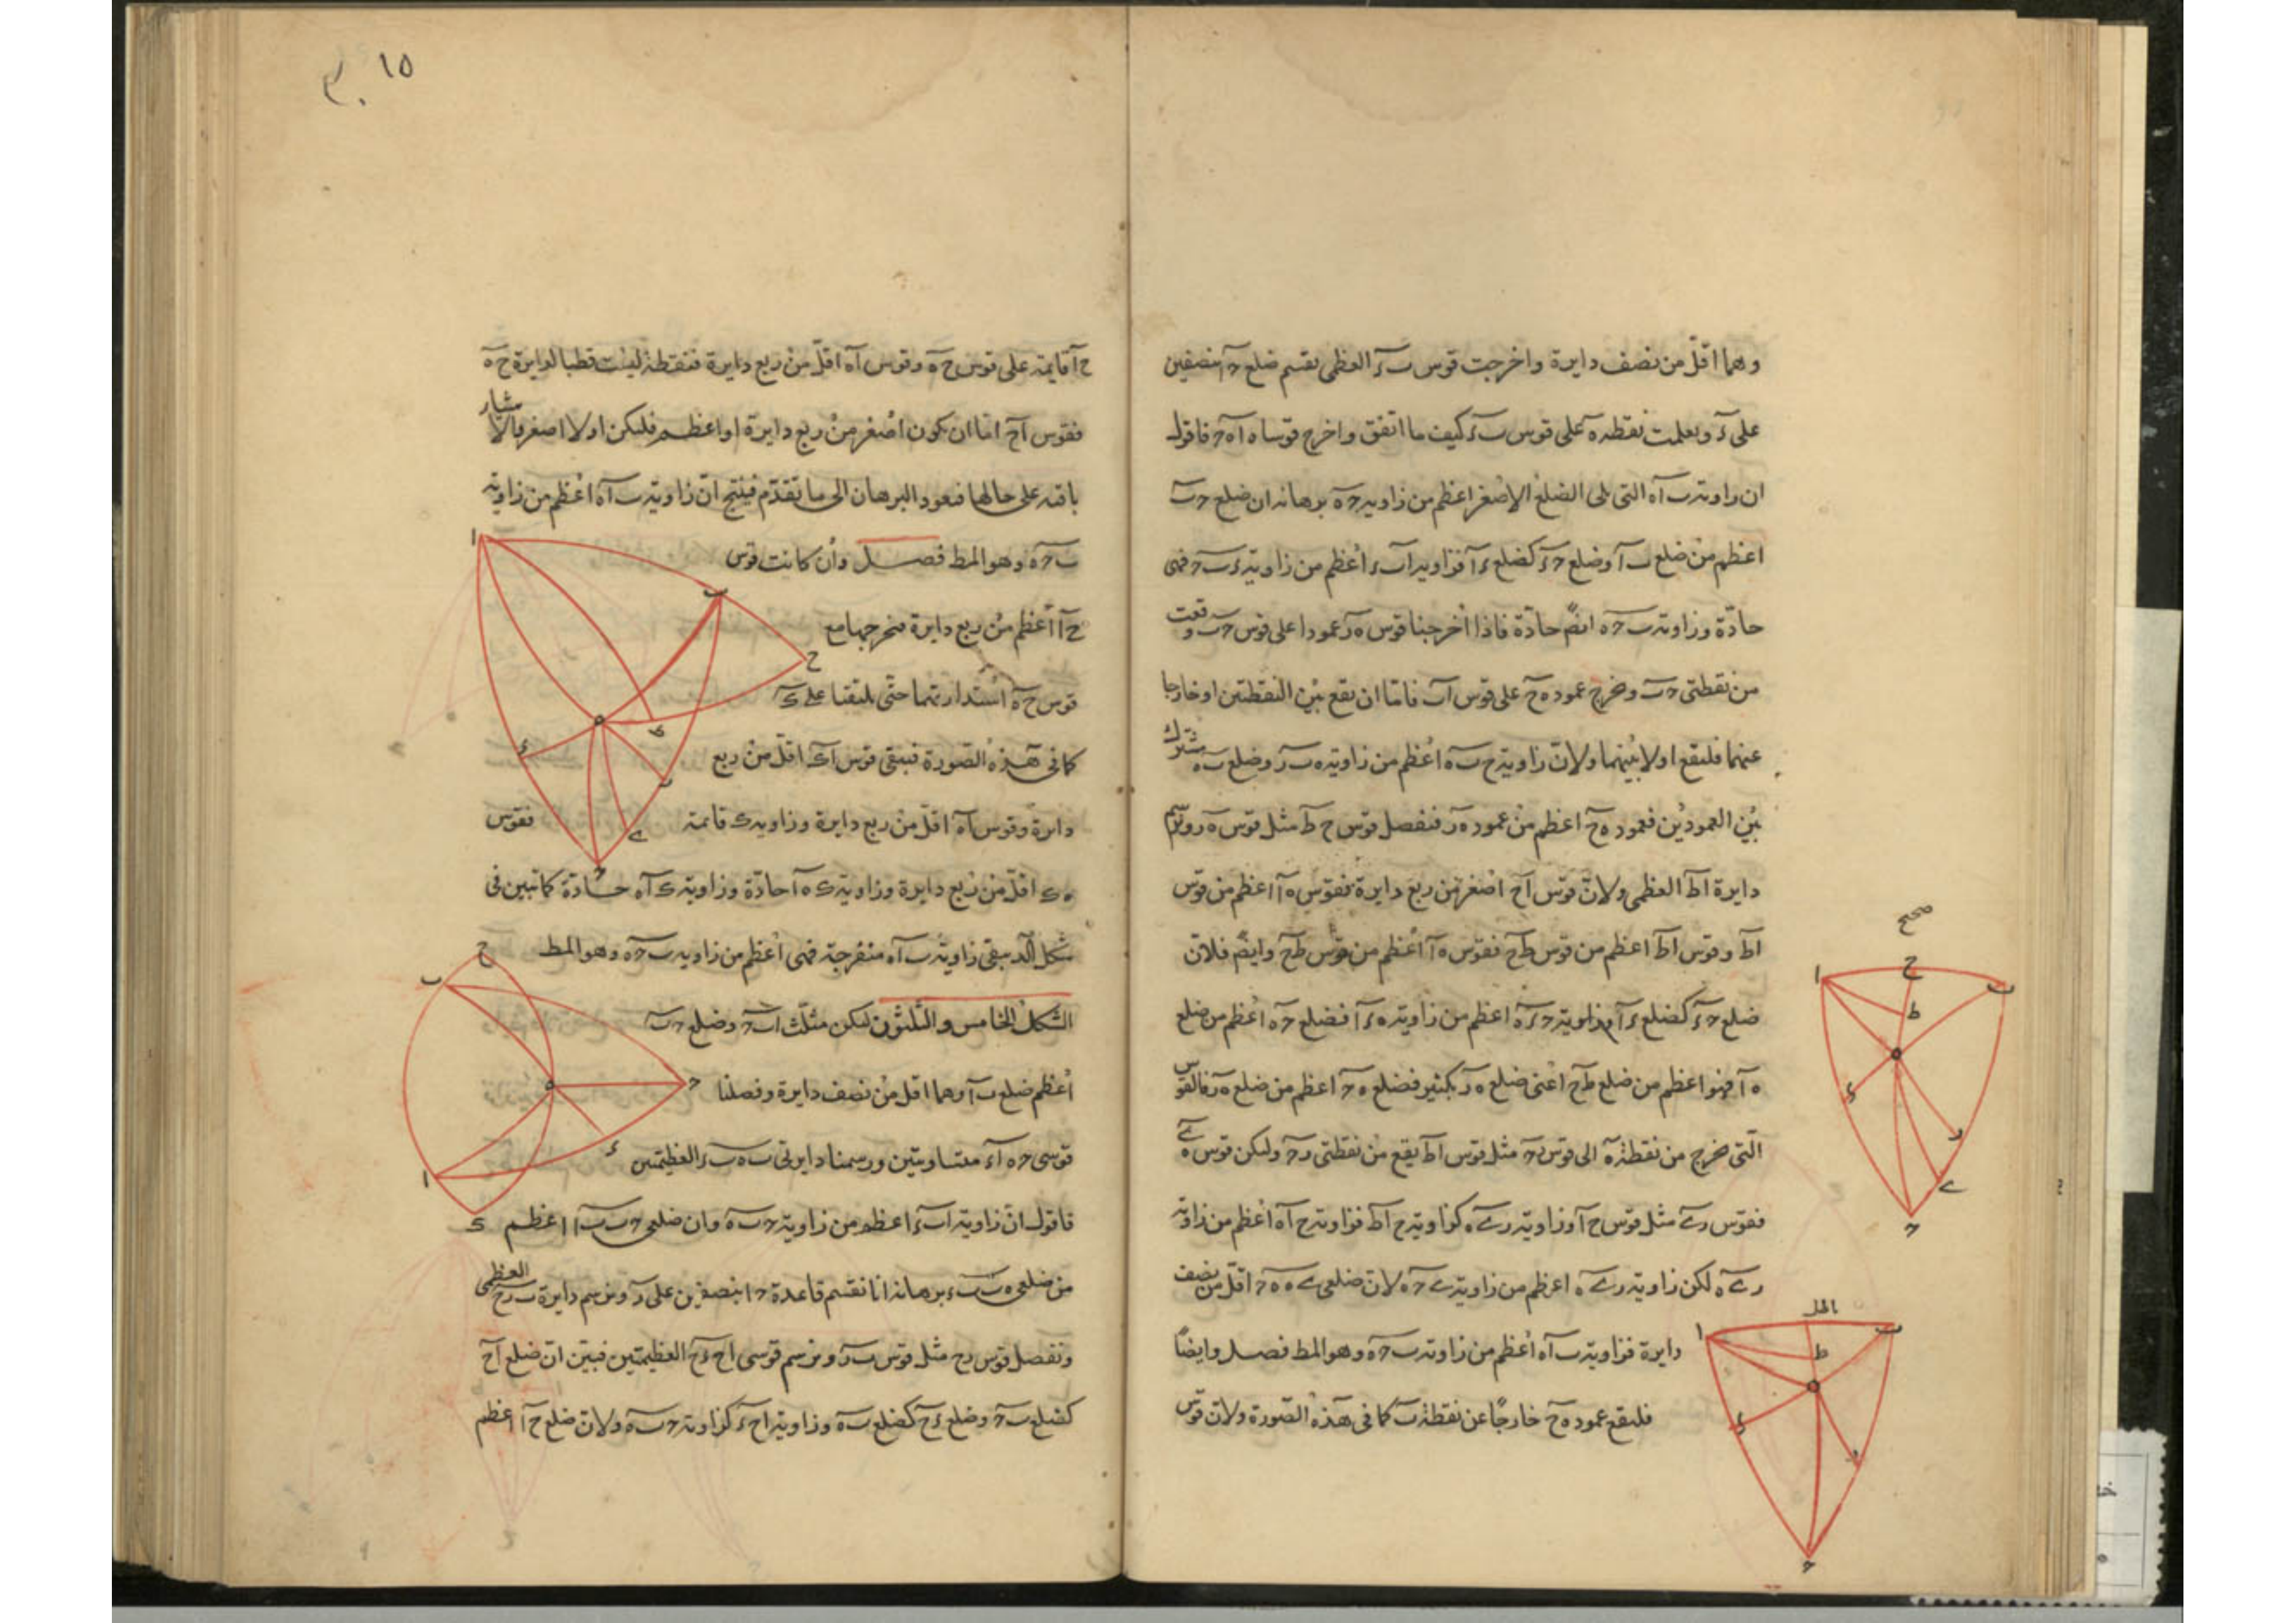 وهما اقل من نصف دايرة واخرجت قوس ب ء العظمى تقسم ضلع حا بنصفين
على ء وتعلمت نقطة ه على قوس ب ء كيف ما اتفق واخرج قوسا ه ا ه ح فاقول
ان زاوية ب ا ه التى تلى الضلع الاصغر اعظم من زاوية ب ح ه برهانه ان ضلع ح ب
اعظم من ضلع ب ا وضلع ح ء كضلع ء ا فزاوية ا ب ء اعظم من زاوية ء ب ح فهى
حادة وزاوية ب ح ه ايضً حادة فاذا اخرجنا قوس ه ر عمودا على قوس ح ب وقعت
من نقطتى ح ب ونخرج عمود ه ح على قوس ا ب فاما ان يقع بين النقطتين او خارجا
عنهما فليقع اولا بينهما ولان زاوية ح ب ه اعظم من زاوية ه ب ر وضلع ب ه مشترك
بين العمودين فعمود ه ح اعظم من عمود ه ر فنفصل قوس ح ط مثل قوس ه ر ونرسم
دايرة ا ط العظمى ولان قوس ا ح اصغر من ربع دايرة فقوس ه ا اعظم من قوس
ا ط وقوس ا ط اعظم من قوس ط ح فقوس ه ا اعظم من قوس ط ح وايضً فلان
ضلع ح ء كضلع ء ا وزاوية ح ء ه اعظم من زاوية ه ء ا فضلع ح ه اعظم من ضلع
ه ا فهو اعظم من ضلع ط ح اعنى ضلع ه ر بكثير فضلع ه ح اعظم من ضلع ه ر فالقوس
التى تخرج من نقطة ه الى قوس ر ح مثل قوس ا ط يقع من نقطتى ر ح وليكن قوس ه ے
فقوس ر ے مثل قوس ح ا وزاوية ر ے ه كزاوية ح ا ط فزاوية ح ا ه اعظم من زاوية
ر ے ه لكن زاوية ر ے ه اعظم من زاوية ے ح ه لان ضلعى ے ه ه ح اقل من نصف
دايرة فزاوية ب ا ه اعظم من زاوية ب ح ه وهو المط فصل وايضاً
فليقع عمود ه ح خارجًا عن نقطة ب كما فى هذه الصورة ولان قوس
صحيح
ا
ح
ب
ط
ه
ء
ر
ے
ح
ا
ب
ط
ه
ء
ر
ح
١٥
ح ا قايمة على قوس ح ه وقوس ا ه اقل من ربع دايرة فنقطة ا ليست قطبا لدايرة ح ه
فقوس ا ح اما ان يكون اصغر من ربع دايرة او اعظم فليكن اولا اصغر بالاشار
باقيه على حالها فنعود البرهان الى ما تقدم فينتج ان زاوية ب ا ه اعظم من زاوية
ب ح ه وهو المط فصل وان كانت قوس
ح ا اعظم من ربع دايرة فنخرجها مع
قوس ح ه استدارتهما حتى يلتقيا على ك
كما فى هذه الصورة فيبقى قوس ا ك اقل من ربع
دايرة وقوس ا ه اقل من ربع دايرة وزاوية ك قائمة فقوس
ه ك اقل من ربع دايرة وزاوية ك ه ا حادة وزاوية ك ا ه حادة كما تبين فى
شكل الد يبقى زاوية ب ا ه منفرجة فهى اعظم من زاوية ب ح ه وهو المط
الشكل الخامس والثلثون ليكن مثلث ا ب ح وضلع ح ب
اعظم ضلع ب ا وهما اقل من نصف دايرة وفصلنا
قوسى ح ه ا ء متساويتين ورسمنا دايرتى ب ه ب ء العظيمتين
فاقول ان زاوية ا ب ء اعظم من زاوية ح ب ه وان ضلعى ح ب ب ا اعظم
من ضلعى ه ب ب ء برهانه انا نقسم قاعدة ح ا بنصفين على ر ونرسم دايرة ب ر ح العظمى
ونفصل قوس ر ح مثل قوس ب ر ونرسم قوسى ا ح ء ح العظيمتين فبين ان ضلع ا ح
كضلع ب ح وضلع ء ح كضلع ب ه وزاوية ا ح ء كزاوية ح ب ه ولان ضلع ح ا اعظم
ا
ب
ح
ه
ط
ء
ر
ے
ح
ح
ب
ه
ح
ء
ا
ك